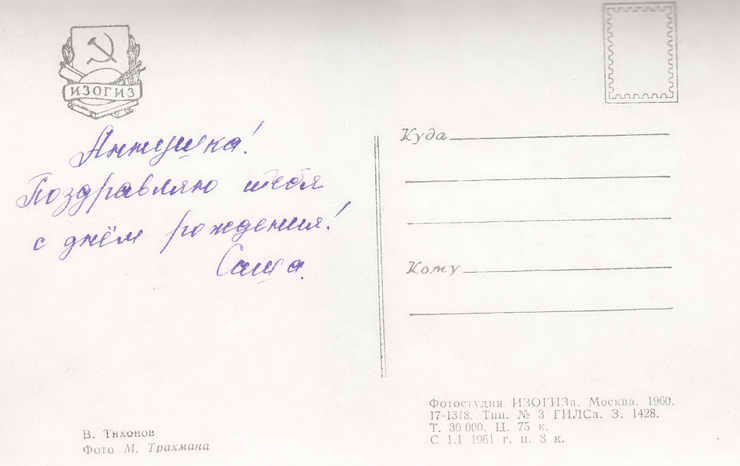 ИЗОГИЗ
Аннушка!
Поздравляю тебя
с днём рождения!
Саша.
В. Тихонов
Фото М. Трахмана
Куда
Кому
Фотостудия ИЗОГИЗа. Москва. 1960.
17-1318. Тип. № 3 ГИЛСа. З. 1428.
Т. 30 000. Ц. 75 к.
С 1.I 1961 г. ц. 8 к.